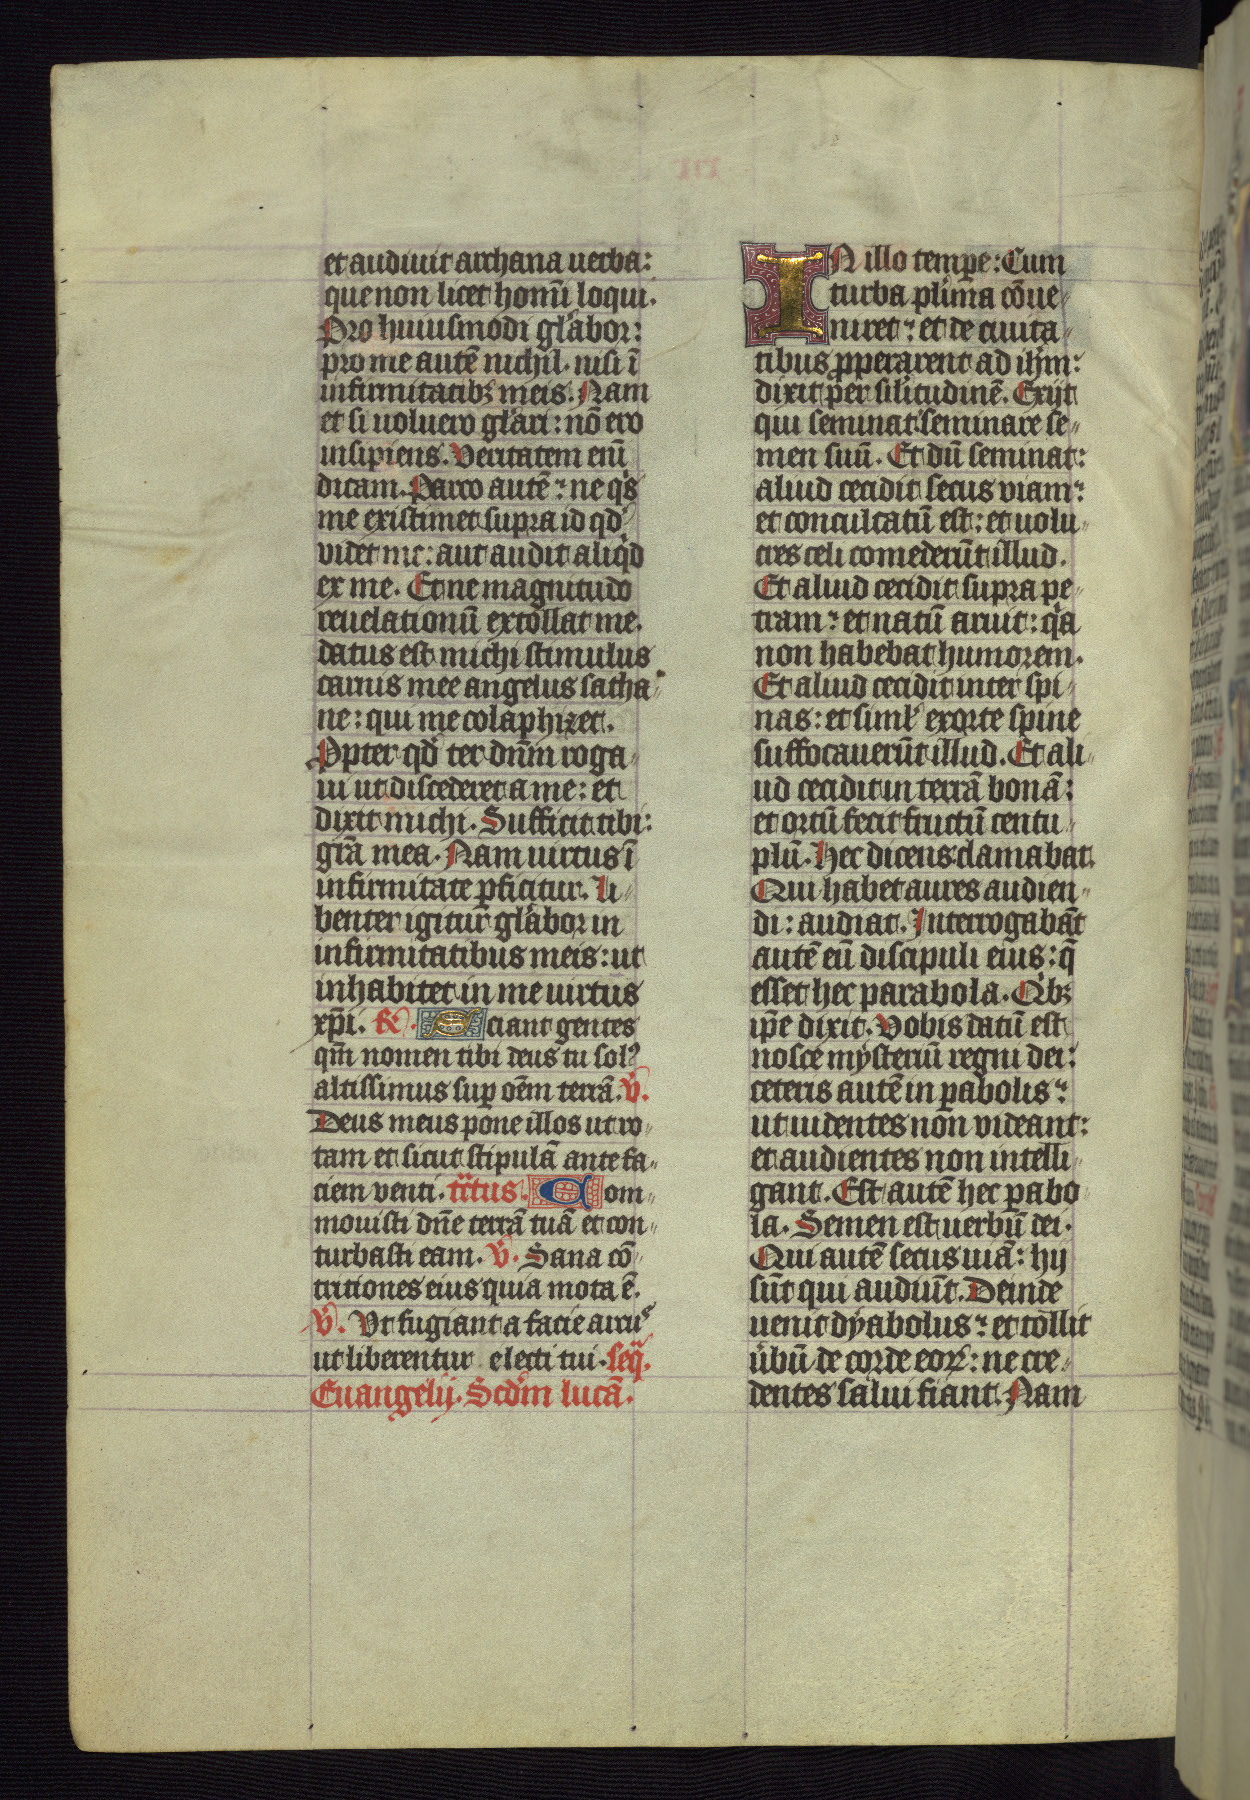 et audiuit archana uerba:
que non licet homĩ loqui.
Pro huiusmodi glãbor:
pro me autẽ nichil. nisi ĩ
infirmitatibꝫ meis. Nam
et si uoluero glãri: nõ ero
insipiens. Veritatem enĩ
dicam. Parco autẽ: ne q̃s
me existimet supra id qd̃
videt me: aut audit aliq̃d
ex me. Et ne magnitudo
reuelationũ extollat me.
datus est michi stimulus
carnis mee angelus satha-
ne: qui me colaphizet.
Ꝓpter qd̃ ter dñm roga-
ui ut discederet a me: et
dixit michi. Sufficit tibi:
grã mea. Nam uirtus ĩ
infirmitate ꝑficitur. Li-
benter igitur glãbor in
infirmitatibus meis: ut
inhabitet in me uirtus
xp̃i. R̃. Sciant gentes
qm̃ nomen tibi deus tu solꝰ
altissimus suꝑ oẽm terrã. v̄.
Deus meus pone illos ut ro-
tam et sicut stipulã ante fa-
ciem venti. tr̃tus. Com-
mouisti dñe terrã tuã et con-
turbasti eam. v̄. Sana cõ-
tritiones eius quia mota ẽ.
v̄. Vt fugiant a facie arcus
ut liberentur electi tui. seq̃.
Euangelij. Scdm̃ lucã.
IN illo temꝑe: Cum
turba plĩma cõue-
niret: et de ciuita-
tibus ꝓperarent ad ihm̃:
dixit per silĩtudinẽ. Exijt
qui seminat seminare se-
men suũ. Et dũ seminat:
aliud cecidit secus viam:
et conculcatũ est: et uolu-
cres celi comederũt illud.
Et aliud cecidit supra pe-
tram: et natũ aruit: q̃a
non habebat humorem.
Et aliud cecidit inter spi-
nas: et siml̃ exorte spine
suffocauerũt illud. Et ali-
ud cecidit in terrã bonã:
et ortũ fecit fructũ centu-
plũ. Hec dicens clamabat.
Qui habet aures audien-
di: audiat. Interrogabãt
autẽ eũ discipuli eius: q̃
esset hec parabola. Qĩbꝫ
ip̃e dixit. Vobis datũ est
nosce mysteriũ regni dei:
ceteris autẽ in ꝑabolis:
ut uidentes non videant:
et audientes non intelli-
gant. Est autẽ hec ꝑabo-
la. Semen est uerbũ dei.
Qui autẽ secus uiã: hij
sũt qui audiũt. Deinde
uenit dyabolus: et tollit
ũbũ de corde eoꝝ: ne cre-
dentes salui fiant. Nam